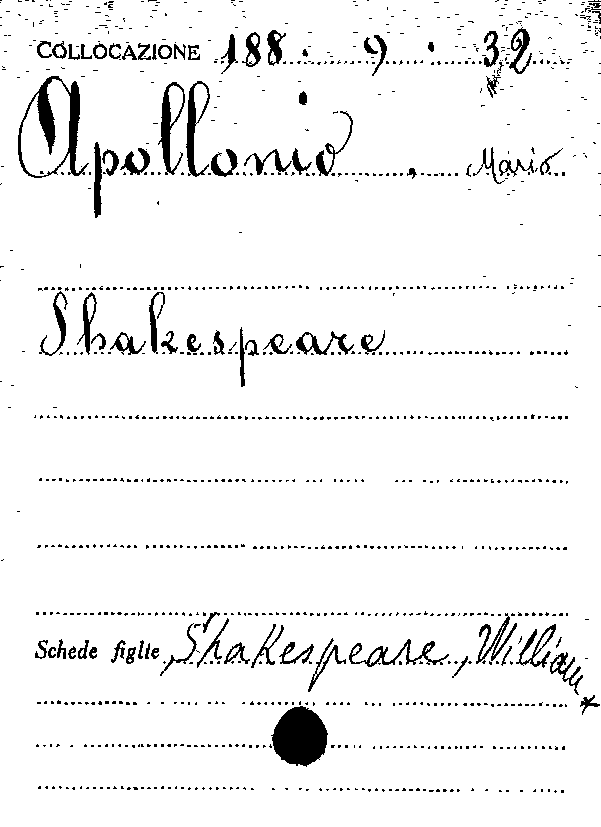 COLLOCAZIONE 188. 9. 32
Apollonio, Mario
Shakespeare
Schede figlie Shakespeare, William *